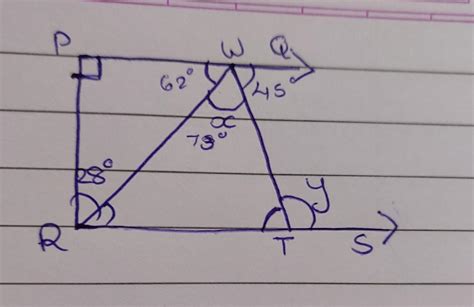 P W Q
62° 45°
x
73°
28° y
R T S